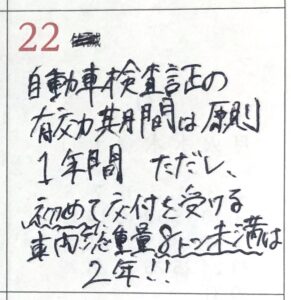 22
自動車検査証の
有効期間は原則
1年間 ただし、
初めて交付を受ける
車両総重量8トン未満は
2年!!